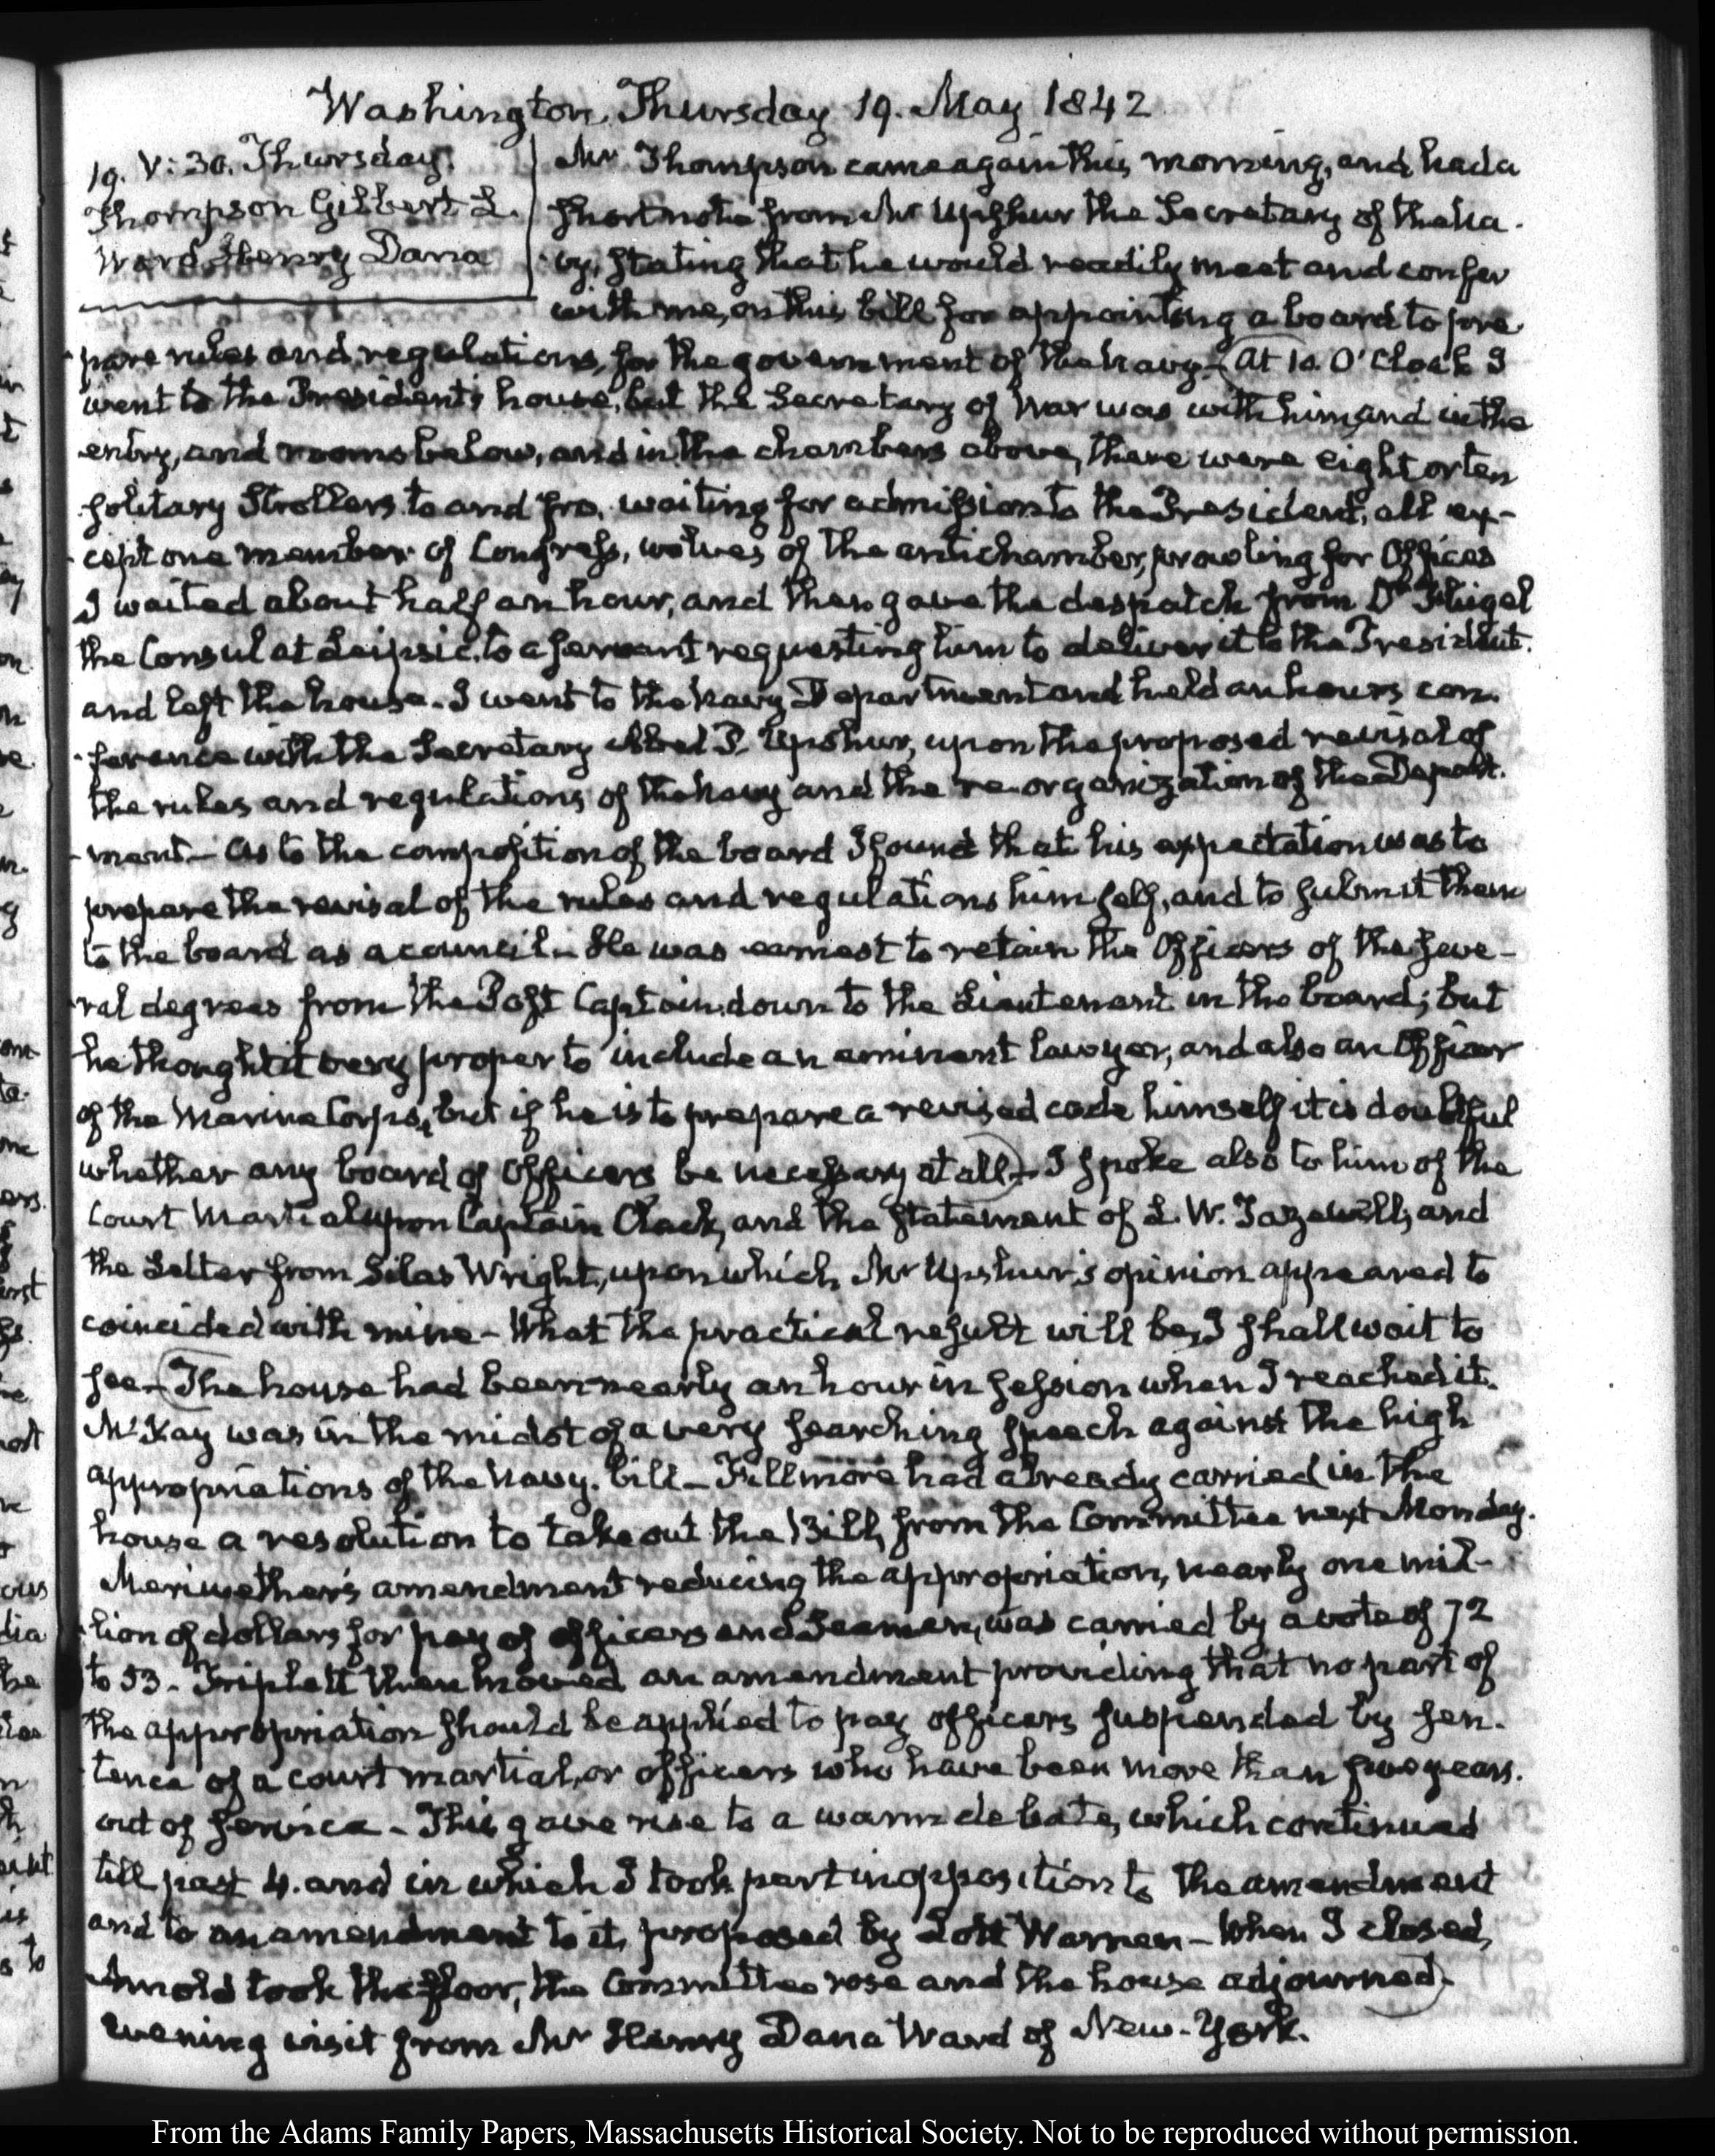 Washington, Thursday 19. May 1842
19. V: 30. Thursday.
Thompson Gilbert L.
Ward Henry Dana
Mr Thompson came again this morning, and had a
short note from Mr Upshur the Secretary of the Na-
vy, stating that he would readily meet and confer
with me, on this bill for appointing a board to pre
pare rules and regulations, for the government of the navy- At 10. O'Clock I
went to the President's house, but the Secretary of War was with him, and in the
entry, and rooms below, and in the chambers above, there were eight or ten
solitary Strollers to and fro, waiting for admission to the President, all ex-
cept one member of Congress, wolves of the antichamber, prowling for Offices
I waited about half an hour, and then gave the despatch from Dr Flügel
the Consul at Leipsic, to a servant requesting him to deliver it to the President.
and left the house. I went to the Navy Department and held an hours con-
ference with the Secretary Abel P. Upshur, upon the proposed revisal of
the rules and regulations of the Navy and the re-organization of the Depart-
ment- As to the composition of the board I found that his expectation was to
prepare the revisal of the rules and regulations himself, and to submit them
to the board as a council- He was earnest to retain the Officers of the seve-
ral degrees from the Post Captain down to the Lieutenant in the board; but
he thought it very proper to include an eminent lawyer, and also an Officer
of the Marine Corps, but if he is to prepare a revised code himself it is doubtful
whether any board of Officers be necessary at all- I spoke also to him of the
Court Martial upon Captain Clack, and the statement of L. W. Tazewell, and
the Letter from Silas Wright, upon which Mr Upshur's opinion appeared to
coincided with mine- What the practical result will be, I shall wait to
see- The house had been nearly an hour in session when I reached it.
McKay was in the midst of a very searching speech against the high
appropriations of the Navy. bill- Fillmore had already carried in the
house a resolution to take out the Bill, from the Committee next Monday.
Meriwether's amendment reducing the appropriation, nearly one mil-
lion of dollars for pay of officers and Seamen, was carried by a vote of 72
to 53- Triplett then moved an amendment providing that no part of
the appropriation should be applied to pay officers suspended by sen-
tence of a court martial, or officers who have been more than five years.
out of service- This gave rise to a warm debate, which continued
till past 4. and in which I took part in opposition to the amendment
and to an amendment to it, proposed by Lott Warren- When I closed,
Arnold took the floor, the Committee rose and the house adjourned-
Evening visit from Mr Henry Dana Ward of New-York.
From the Adams Family Papers, Massachusetts Historical Society. Not to be reproduced without permission.